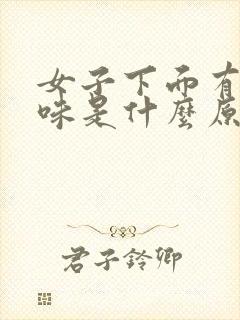 女子下面有
味是什麼原
君子鈴卿